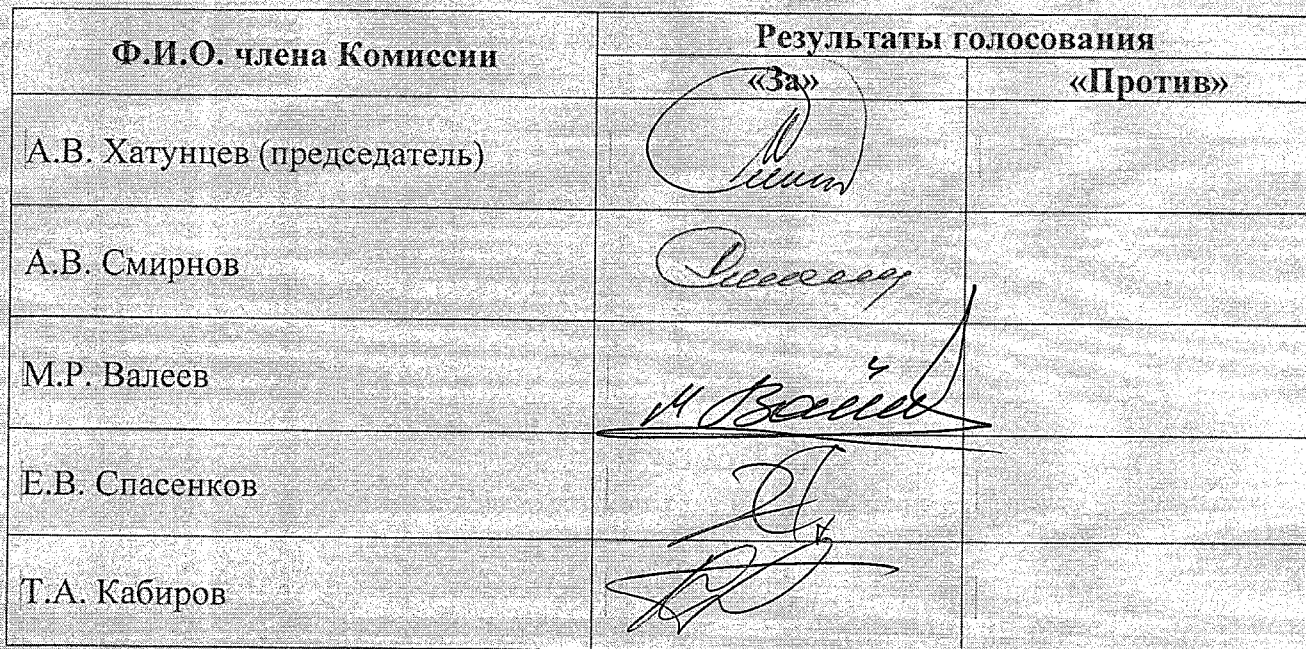 Ф.И.О. члена Комиссии
Результаты голосования
«За»
«Против»
А.В. Хатунцев (председатель)
А.В. Смирнов
М.Р. Валеев
Е.В. Спасенков
Т.А. Кабиров